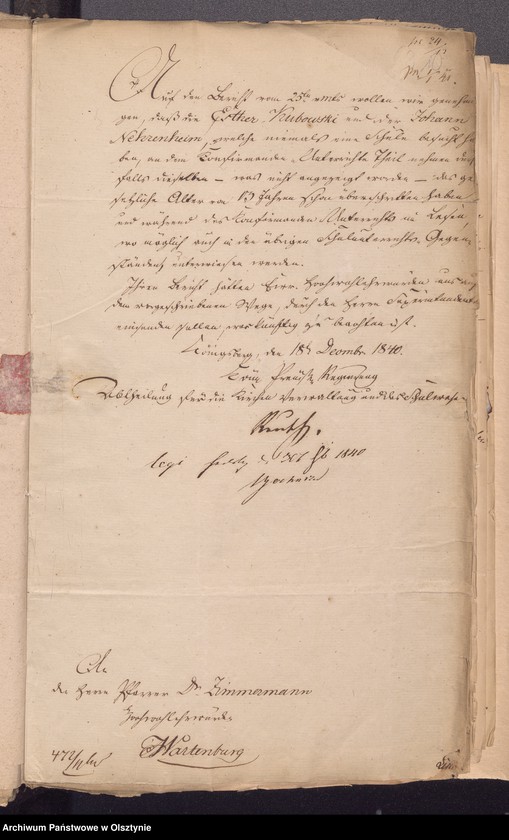 Auf den Bericht vom 25ten v mts wollen wir genehmi
gen, daß die Esther Krubowski und der Johann
Nehrenheim, welche niemals eine Schule besucht ha
ben, an dem Confirmanden Unterrichte Theil nehmen
falls dieselben – was nicht angezeigt worden – das ge
setzliche Alter von 13 Jahren schon überschritten haben
und während des Konfirmanden Unterrichts im Lesen,
wo möglich auch in den übrigen Schulunterrichts Gegen
ständen unterwiesen werden.
Ihren Bericht hätten Euer Hochwohlehrwürden uns auf
dem vorgeschriebenen Wege, durch den Herrn Superintendent
einsenden sollen, was künftig zu beachten ist.
Königsberg, den 18t Decembr 1840.
Königl Preuß Regierung
Abtheilung für die Kirchen Verwaltung und das Schulwesen
legi 1840
An
den Herrn Pfarrer Dr Zimmermann
Hochwohlehrwürden
Wartenburg
Archiwum Państwowe w Olsztynie